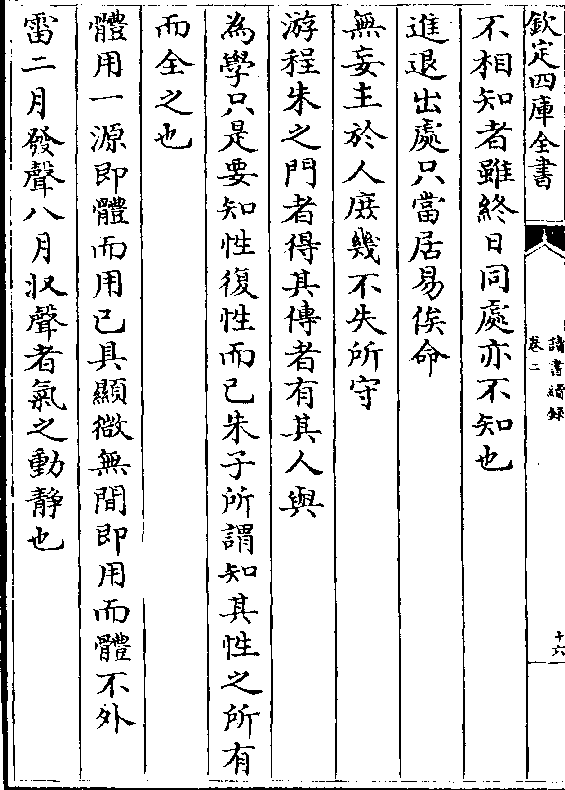 欽定四庫全書
讀書續錄
卷二
十六
不相知者雖終日同處亦不知也
進退出處只當居易俟命
無妄主於人庶幾不失所守
游程朱之門者得其傳者有其人與
為學只是要知性復性而已朱子所謂知其性之所有
而全之也
體用一源即體而用已具顯微無間即用而體不外
雷二月發聲八月収聲者氣之動靜也